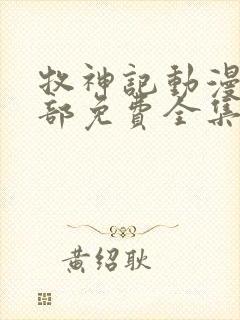 牧神記動漫
部免費全集
黄绍耿